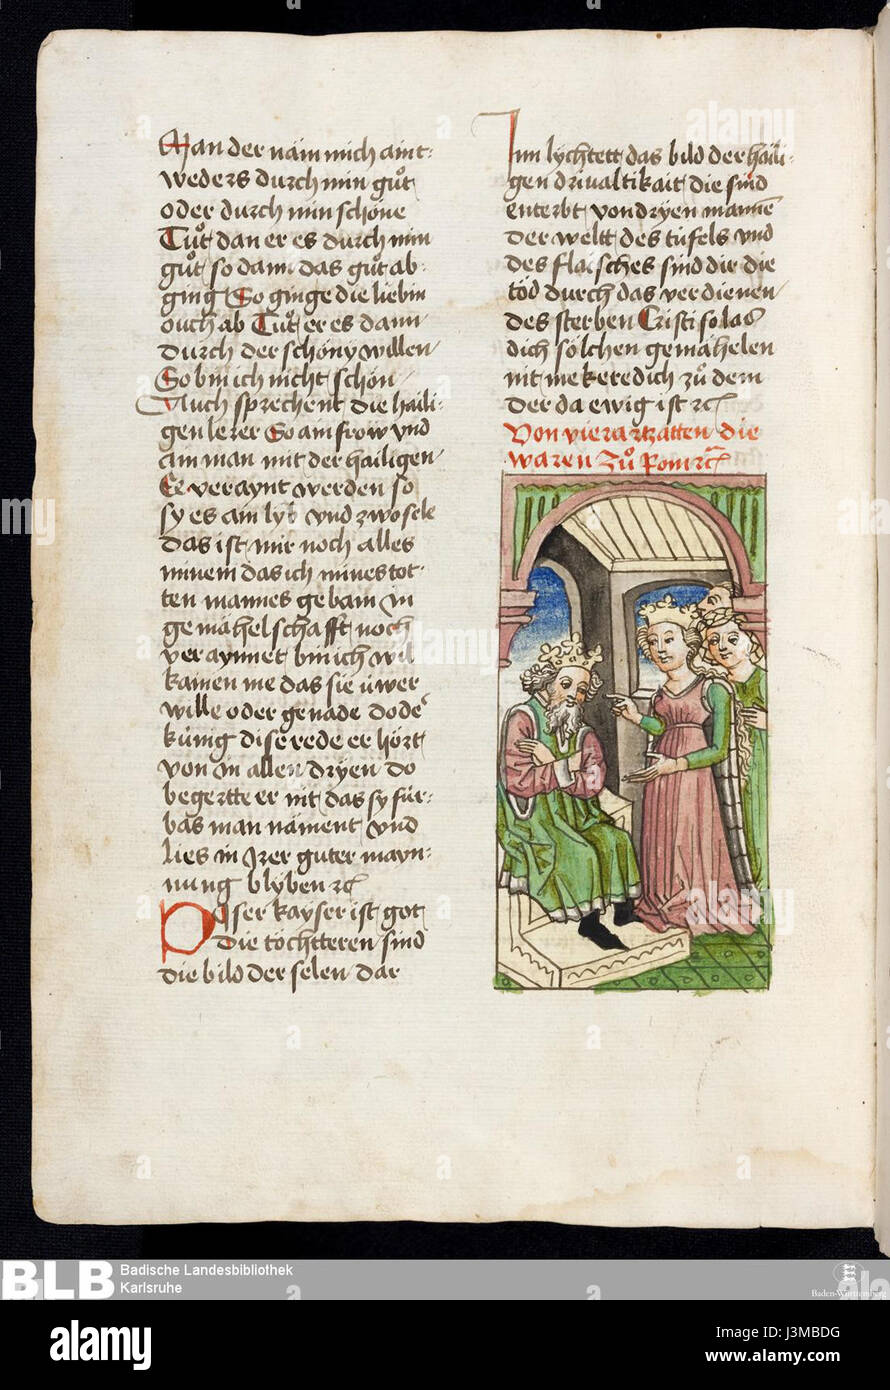 Man der näm mich aint-
weders durch min gůt
oder durch min schöne
Tůt dan er es durch min
gůt so dann das gůt ab-
ging So ginge die liebin
ouch ab Tůt er es dann
durch der schöny willen
So bin ich nicht schön
Auch sprechent die haili-
gen lerer So ain frow vnd
ain man mit der hailigen
E veraynt werden so
sy es ain lyb vnd zwo sele
das ist mir noch alles
minem das ich mines tot-
ten mannes gebain in
gemähelschafft noch
veraynnet bin ich wil
kainen me das sie üwer
wille oder genade do der
künig dise rede er hört
von in allen dryen do
begertte er nit das sy für-
bas man näment vnd
lies in Jrer guter mayn-
nung blyben ꝛc
Diser kayser ist got
die töchtteren sind
die bild der selen dar
Inn lychtett das bild der haili-
gen drivaltikait die sind
enterbt von dryen manne
der weltt des tüfels vnd
des flaisches sind dir die
töd durch das verdienen
des sterben Cristi so las
dich sölchen gemähelen
nit me kere dich zů dem
der da ewig ist ꝛc
Von vier artzatten die
waren Zů Rom ꝛc
BLB Badische Landesbibliothek
Karlsruhe
Baden-Württemberg
alamy
Image ID: J3MBDG
www.alamy.com